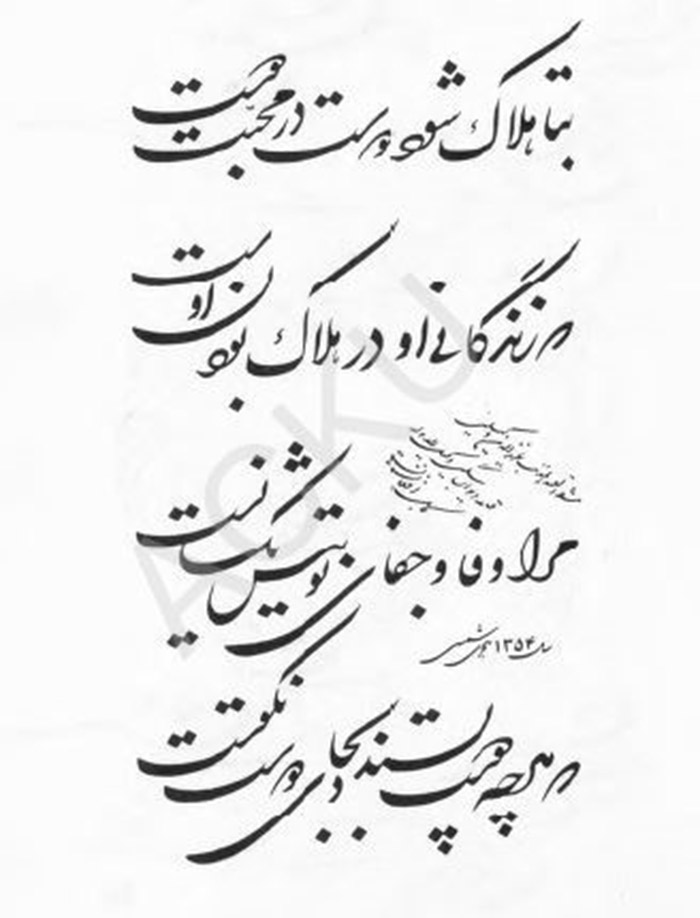 بتا هلاک شود دوست در محبت دوست
که زندگانی او در هلاک بودن اوست
مرا وفا و جفای تو پیش یکسانست
سال ۱۳۵۴ هجری شمسی
که هرچه دوست پسندد بجای دوست نکوست
ACKU